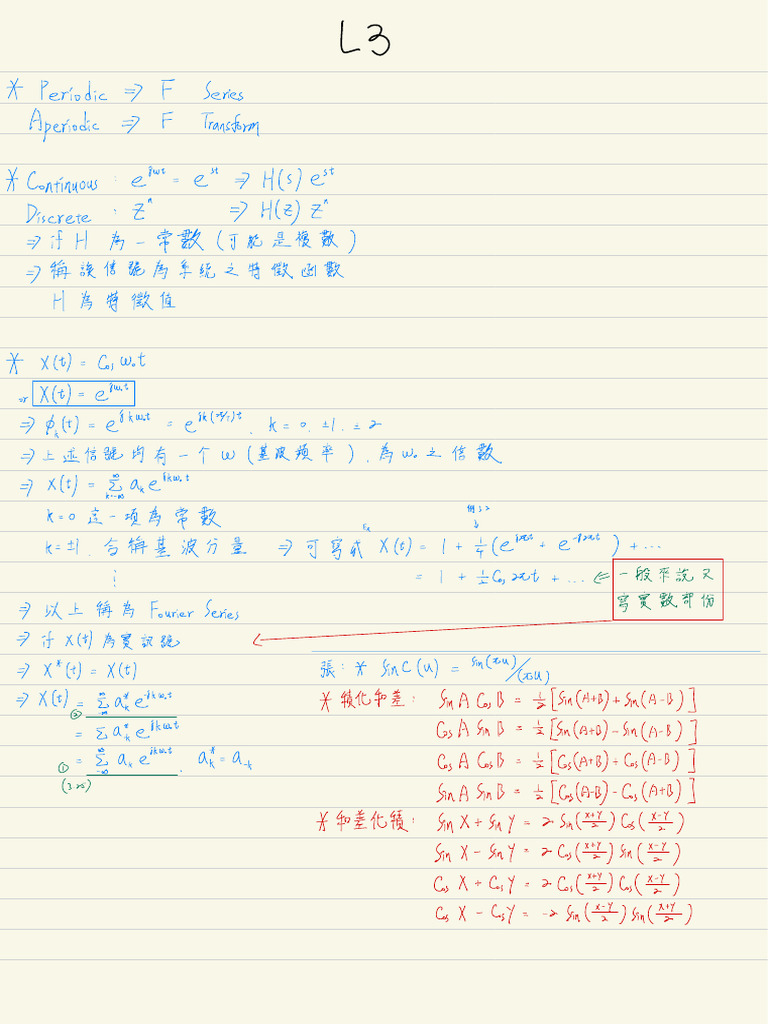 L3
* Periodic ⇒ F Series
Aperiodic ⇒ F Transform
* Continuous : e^{jωt} = e^{st} ⇒ H(s) e^{st}
Discrete : Z^n ⇒ H(z) Z^n
⇒ 若 H 為一常數 (可能是複數)
⇒ 稱該信號為系統之特徵函數
H 為特徵值
* X(t) = Cos ω₀t
or X(t) = e^{jω₀t}
⇒ ϕ_k(t) = e^{jkω₀t} = e^{jk(2π/T)t}, k = 0, ±1, ±2
⇒ 上述信號均有一个 ω (基波頻率), 為 ω₀ 之信數
⇒ X(t) = Σ_{k=-∞}^{∞} a_k e^{jkω₀t}
k=0 這一項為常數
例3.2
k=±1, 合稱基波分量 ⇒ 可寫成 Ex X(t) = 1 + 1/4 (e^{j2πt} + e^{-j2πt}) + ...
⋮ = 1 + 1/2 Cos 2πt + ... ⇐ 一般來說又
寫實數部份
⇒ 以上稱為 Fourier Series
⇒ 若 X(t) 為實訊號
⇒ X*(t) = X(t)
⇒ X(t) = Σ_{-∞}^{∞} a_k* e^{-jkω₀t}
②
= Σ a_{-k}* e^{jkω₀t}
① = Σ_{-∞}^{∞} a_k e^{jkω₀t}, a_k* = a_{-k}
(3.25)
張: * SinC(u) = Sin(πu)/(πu)
* 積化和差: Sin A Cos B = 1/2 [Sin(A+B) + Sin(A-B)]
Cos A Sin B = 1/2 [Sin(A+B) - Sin(A-B)]
Cos A Cos B = 1/2 [Cos(A+B) + Cos(A-B)]
Sin A Sin B = 1/2 [Cos(A-B) - Cos(A+B)]
* 和差化積: Sin X + Sin Y = 2 Sin((x+y)/2) Cos((x-y)/2)
Sin X - Sin Y = 2 Cos((x+y)/2) Sin((x-y)/2)
Cos X + Cos Y = 2 Cos((x+y)/2) Cos((x-y)/2)
Cos X - Cos Y = -2 Sin((x-y)/2) Sin((x+y)/2)